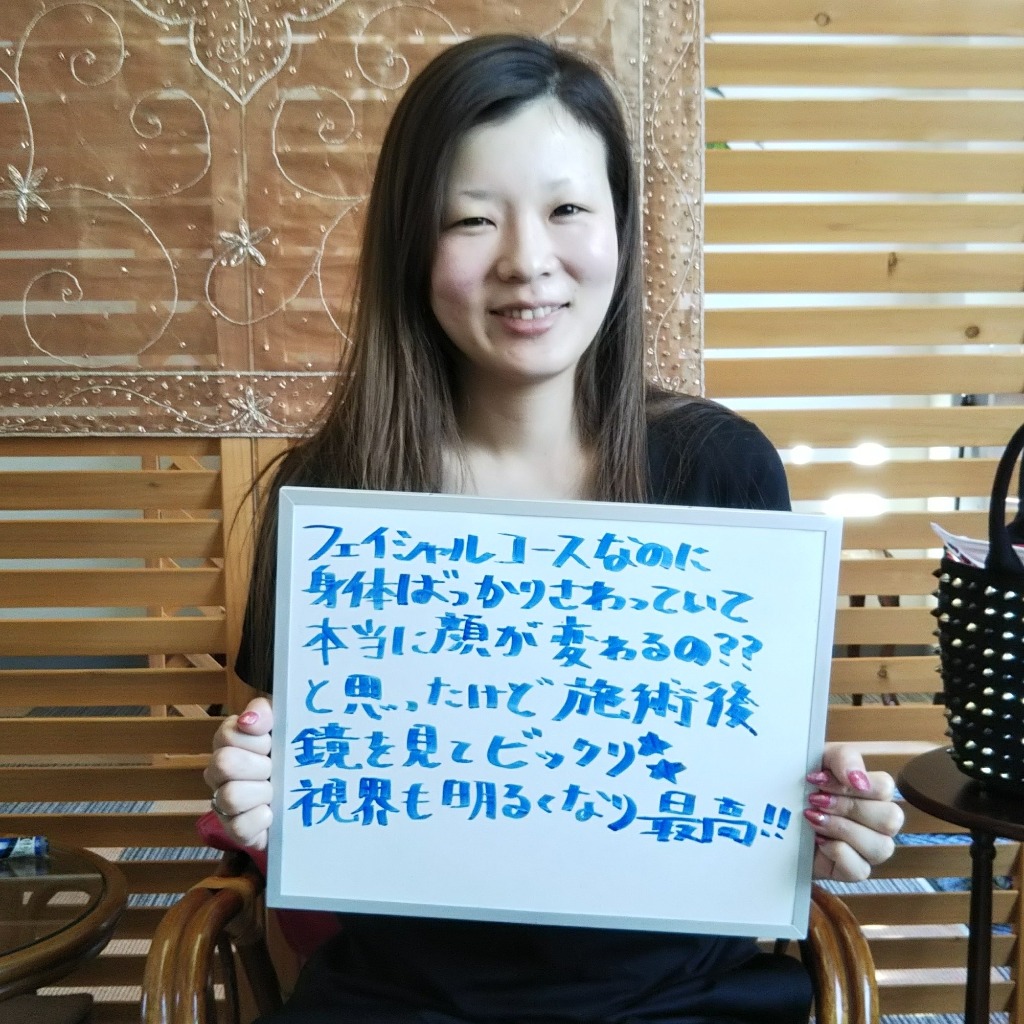 フェイシャルコースなのに
身体ばっかりさわっていて
本当に顔が変わるの??
と思ったけど施術後
鏡を見てビックリ★★
視界も明るくなり最高!!